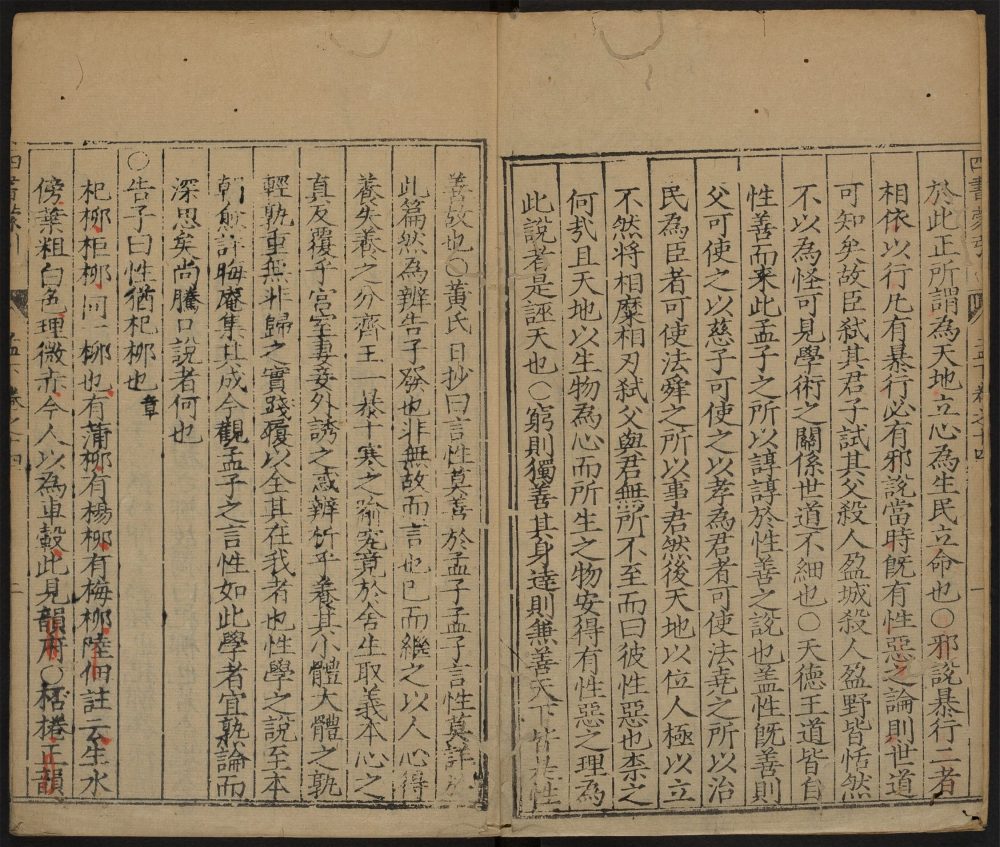 於此正所謂為天地立心為生民立命也○邪說暴行二者
相依以行凡有暴行必有邪說當時既有性惡之論則世道
可知矣故臣弒其君子弒其父殺人盈城殺人盈野皆恬然
不以為怪可見學術之關係世道不細也○天德王道皆自
性善而来此孟子之所以諄諄於性善之說也盖性既善則
父可使之以慈子可使之以孝為君者可使法堯之所以治
民為臣者可使法舜之所以事君然後天地以位人極以立
不然將相糜相刃弒父與君無所不至而曰彼性惡也柰之
何㢤且天地以生物為心而所生之物安得有性惡之理為
此說者是誣天也○窮則獨善其身達則兼善天下皆是性
善故也○黃氏日抄曰言性莫善於孟子孟子言性莫詳於
此篇然為辨告子發也非無故而言也已而繼之以人心得
養失養之分齊王一暴十寒之喻究竟於舍生取義本心之
真反覆乎宫室妻妾外誘之惑辨析乎養其小體大體之孰
輕孰重無非歸之實踐履以全其在我者也性學之說至本
朝愈詳晦庵集其成今觀孟子之言性如此學者宜孰論而
深思矣尚騰口說者何也
○告子曰性猶杞柳也章
杞柳柜柳河一柳也有蒲柳有楊柳有梅柳陸佃註云生水
傍葉粗白色理微赤今人以為車轂此見韻府○桮棬正韻
四書蒙引